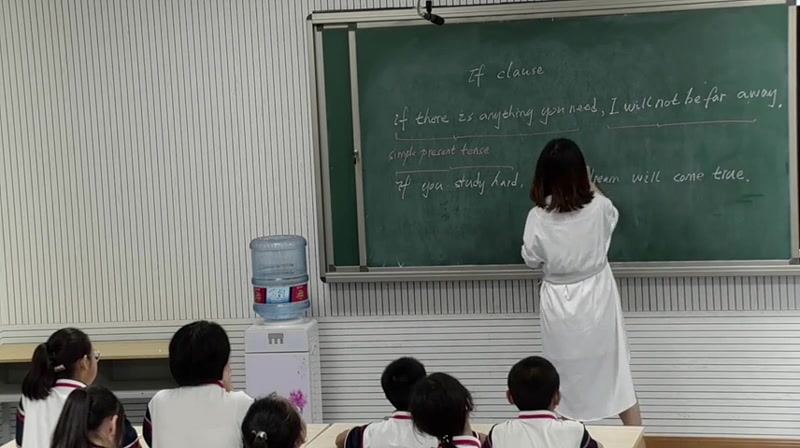 If clause
if there is anything you need, I will not be far away.
simple present tense
if you study hard, dream will come true.